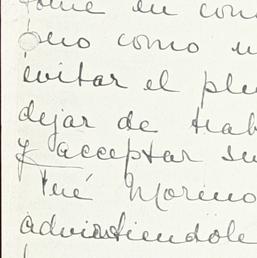 en con
pero como u
evitar el ple
dejar de trab
y acceptar su
Tué Moreno
adviirtiendole